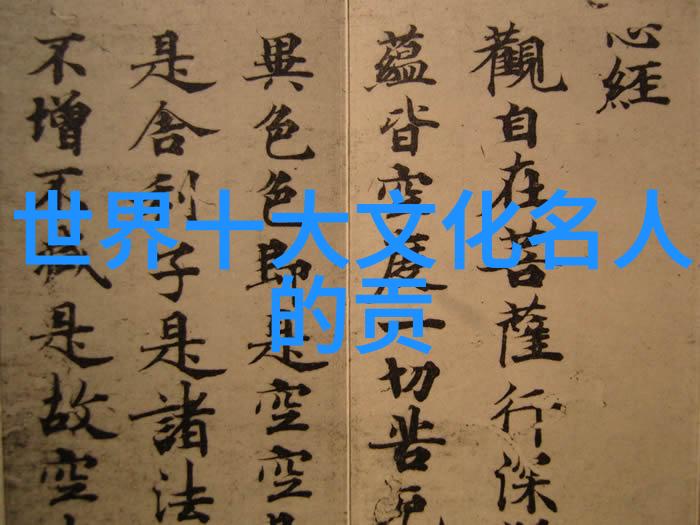 世界十大文化名人
的贡
心經
觀自在菩薩行深
蘊皆空度一切苦厄
異色色即是空空
是舍利子是諸法
不增不減是故空